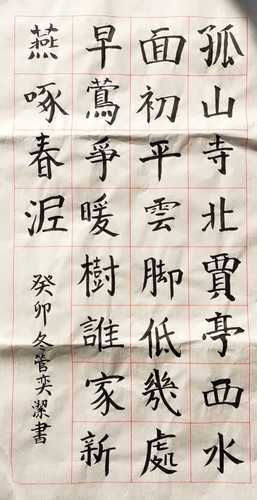 孤山寺北賈亭西水
面初平雲脚低幾處
早鶯爭暖樹誰家新
燕啄春泥
癸卯冬管奕潔書